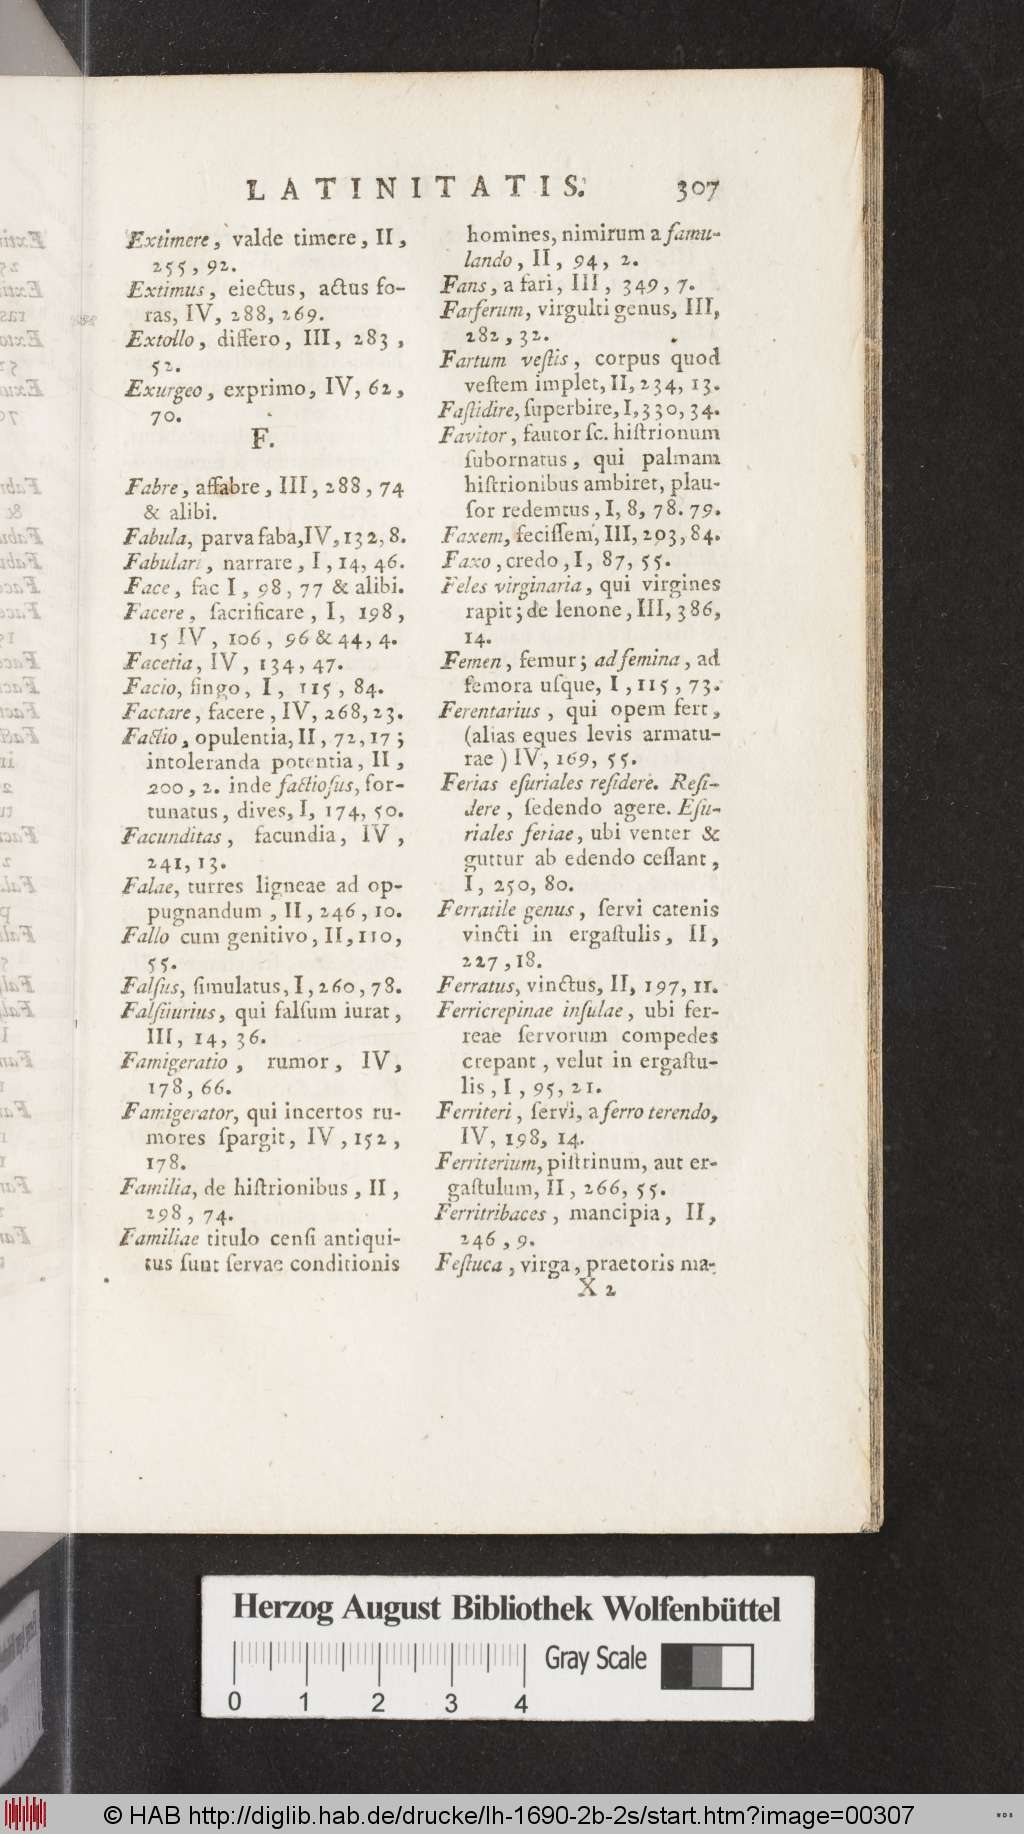 LATINITATIS. 307
Extimere, valde timere, II,
255, 92.
Extimus, eiectus, actus fo-
ras, IV, 288, 269.
Extollo, differo, III, 283,
52.
Exurgeo, exprimo, IV, 62,
70.
F.
Fabre, affabre, III, 288, 74
& alibi.
Fabula, parva faba, IV, 132, 8.
Fabulari, narrare, I, 14, 46.
Face, fac I, 98, 77 & alibi.
Facere, ſacrificare, I, 198,
15 IV, 106, 96 & 44, 4.
Facetia, IV, 134, 47.
Facio, fingo, I, 115, 84.
Factare, facere, IV, 268, 23.
Factio, opulentia, II, 72, 17;
intoleranda potentia, II,
200, 2. inde factioſus, for-
tunatus, dives, I, 174, 50.
Facunditas, facundia, IV,
241, 13.
Falae, turres ligneae ad op-
pugnandum, II, 246, 10.
Fallo cum genitivo, II, 110,
55.
Falſus, ſimulatus, I, 260, 78.
Falſiiurius, qui falſum iurat,
III, 14, 36.
Famigeratio, rumor, IV,
178, 66.
Famigerator, qui incertos ru-
mores ſpargit, IV, 152,
178.
Familia, de hiſtrionibus, II,
298, 74.
Familiae titulo cenſi antiqui-
tus ſunt ſervae conditionis
homines, nimirum a famu-
lando, II, 94, 2.
Fans, a fari, III, 349, 7.
Farferum, virgulti genus, III,
282, 32.
Fartum veſtis, corpus quod
veſtem implet, II, 234, 13.
Faſtidire, ſuperbire, I, 330, 34.
Favitor, fautor ſc. hiſtrionum
ſubornatus, qui palmam
hiſtrionibus ambiret, plau-
ſor redemtus, I, 8, 78. 79.
Faxem, feciſſem, III, 293, 84.
Faxo, credo, I, 87, 55.
Feles virginaria, qui virgines
rapit; de lenone, III, 386,
14.
Femen, femur; ad femina, ad
femora uſque, I, 115, 73.
Ferentarius, qui opem fert,
(alias eques levis armatu-
rae) IV, 169, 55.
Ferias eſuriales reſidere. Reſi-
dere, ſedendo agere. Eſu-
riales feriae, ubi venter &
guttur ab edendo ceſſant,
I, 250, 80.
Ferratile genus, ſervi catenis
vincti in ergaſtulis, II,
227, 18.
Ferratus, vinctus, II, 197, 11.
Ferricrepinae inſulae, ubi fer-
reae ſervorum compedes
crepant, velut in ergaſtu-
lis, I, 95, 21.
Ferriteri, ſervi, a ferro terendo,
IV, 198, 14.
Ferriterium, piſtrinum, aut er-
gaſtulum, II, 266, 55.
Ferritribaces, mancipia, II,
246, 9.
Feſtuca, virga, praetoris ma-
X 2
Herzog August Bibliothek Wolfenbüttel
Gray Scale
0 1 2 3 4
© HAB http://diglib.hab.de/drucke/lh-1690-2b-2s/start.htm?image=00307